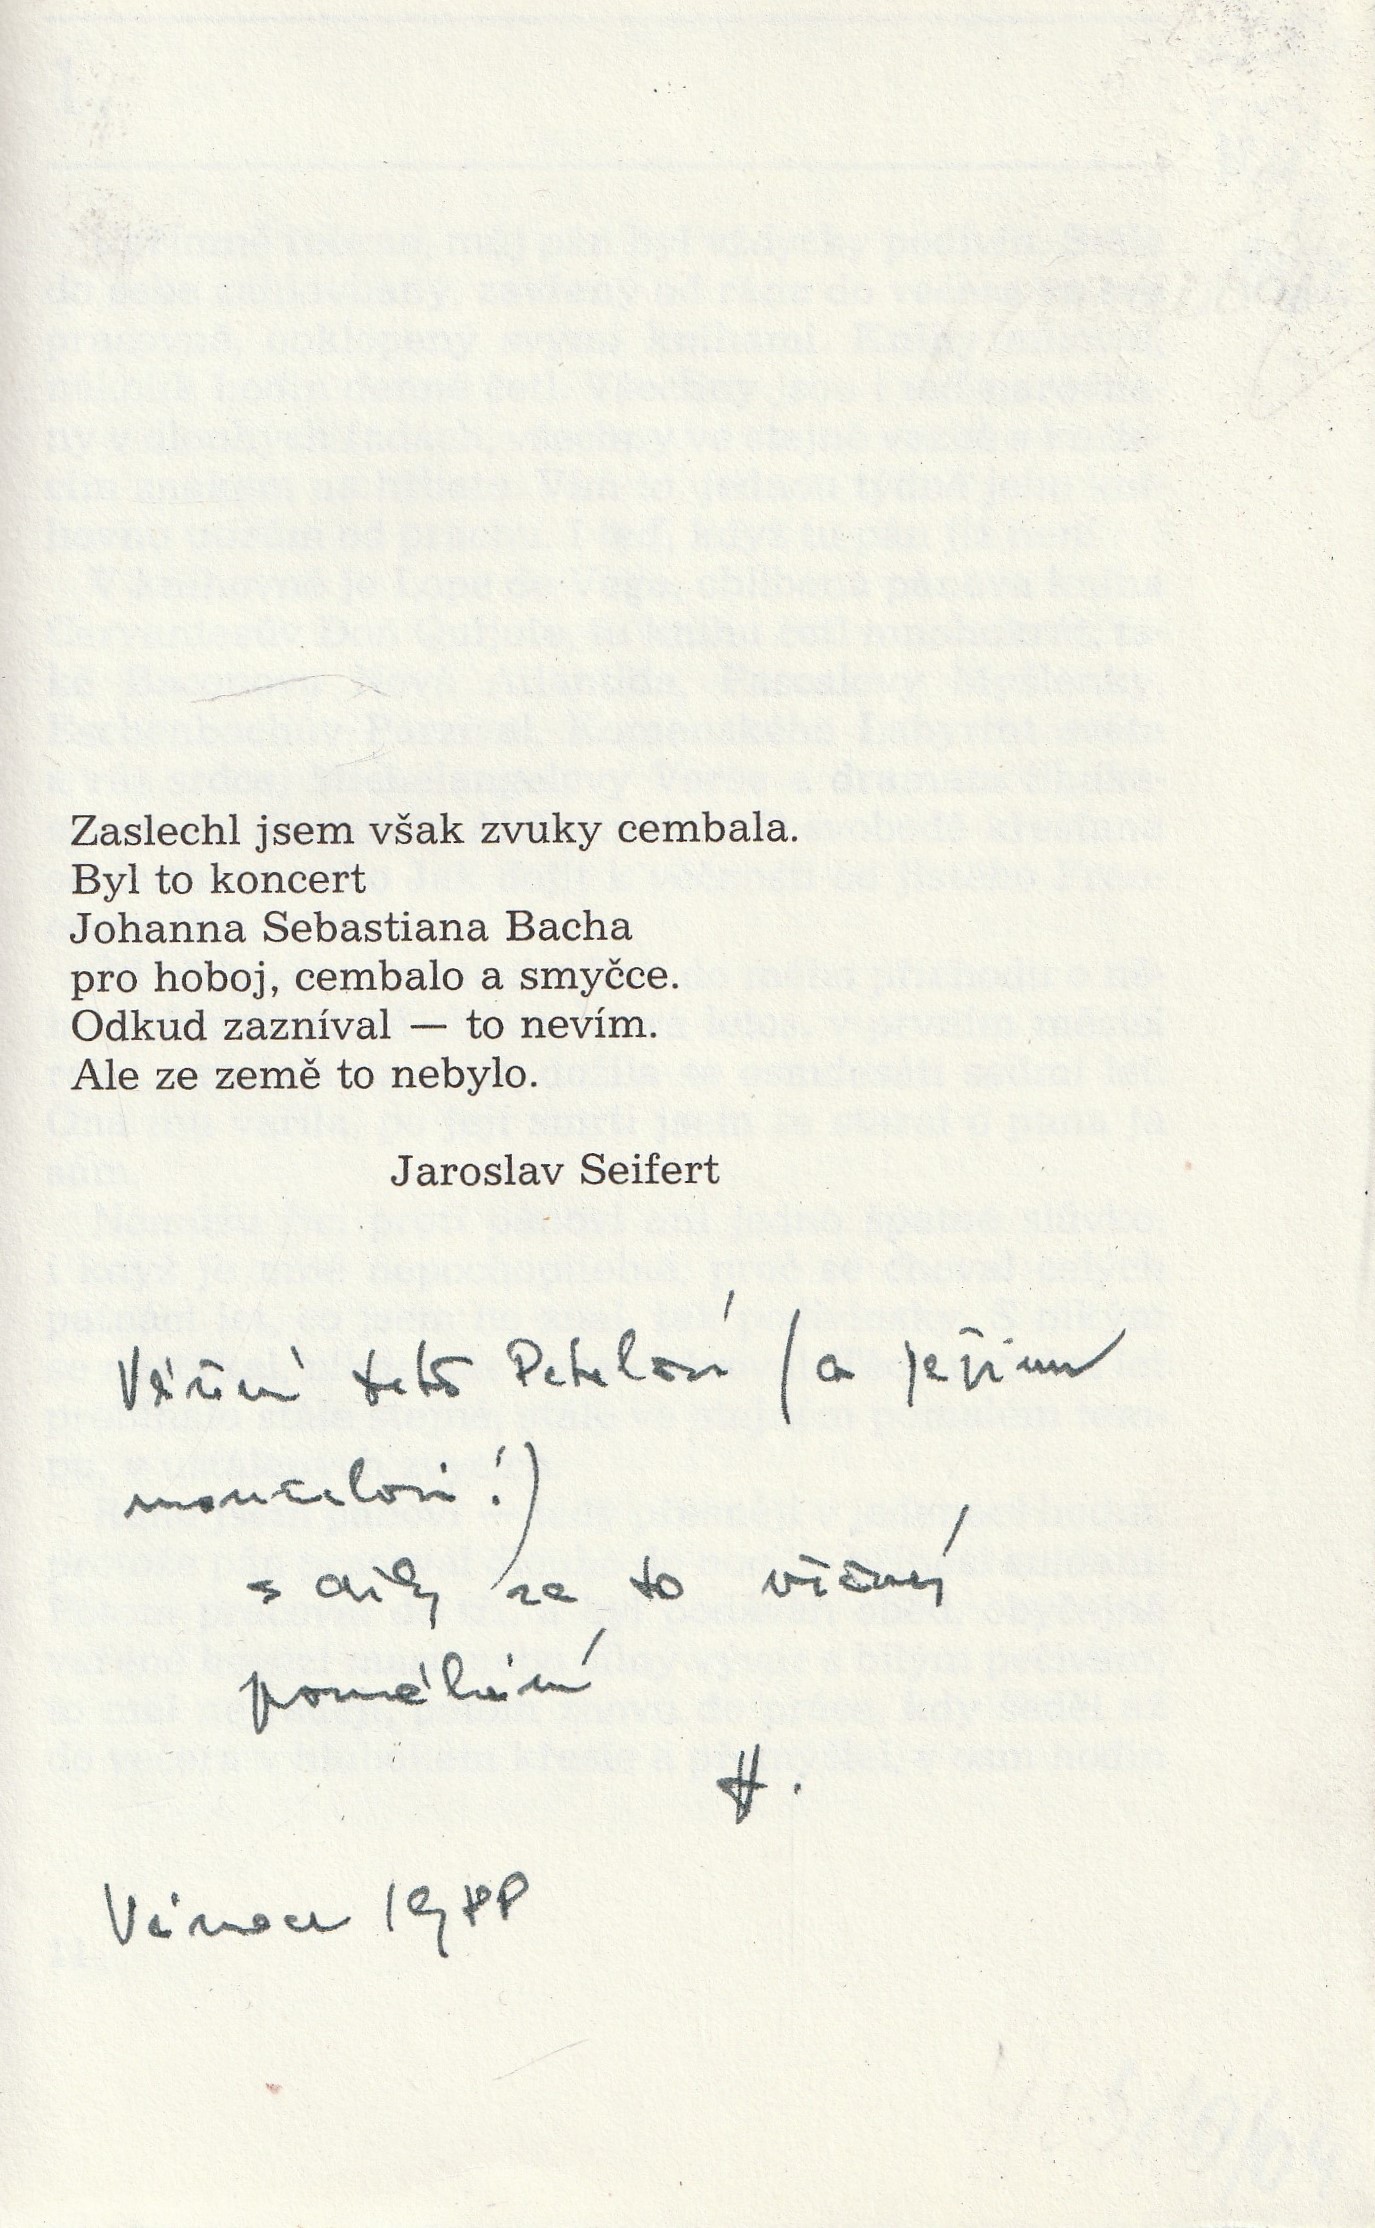 Zaslechl jsem však zvuky cembala.
Byl to koncert
Johanna Sebastiana Bacha
pro hoboj, cembalo a smyčce.
Odkud zazníval — to nevím.
Ale ze země to nebylo.
Jaroslav Seifert
(a jejímu
manželovi!)
s díky za to věčné
pomáhání
H.
Vánoce 1988